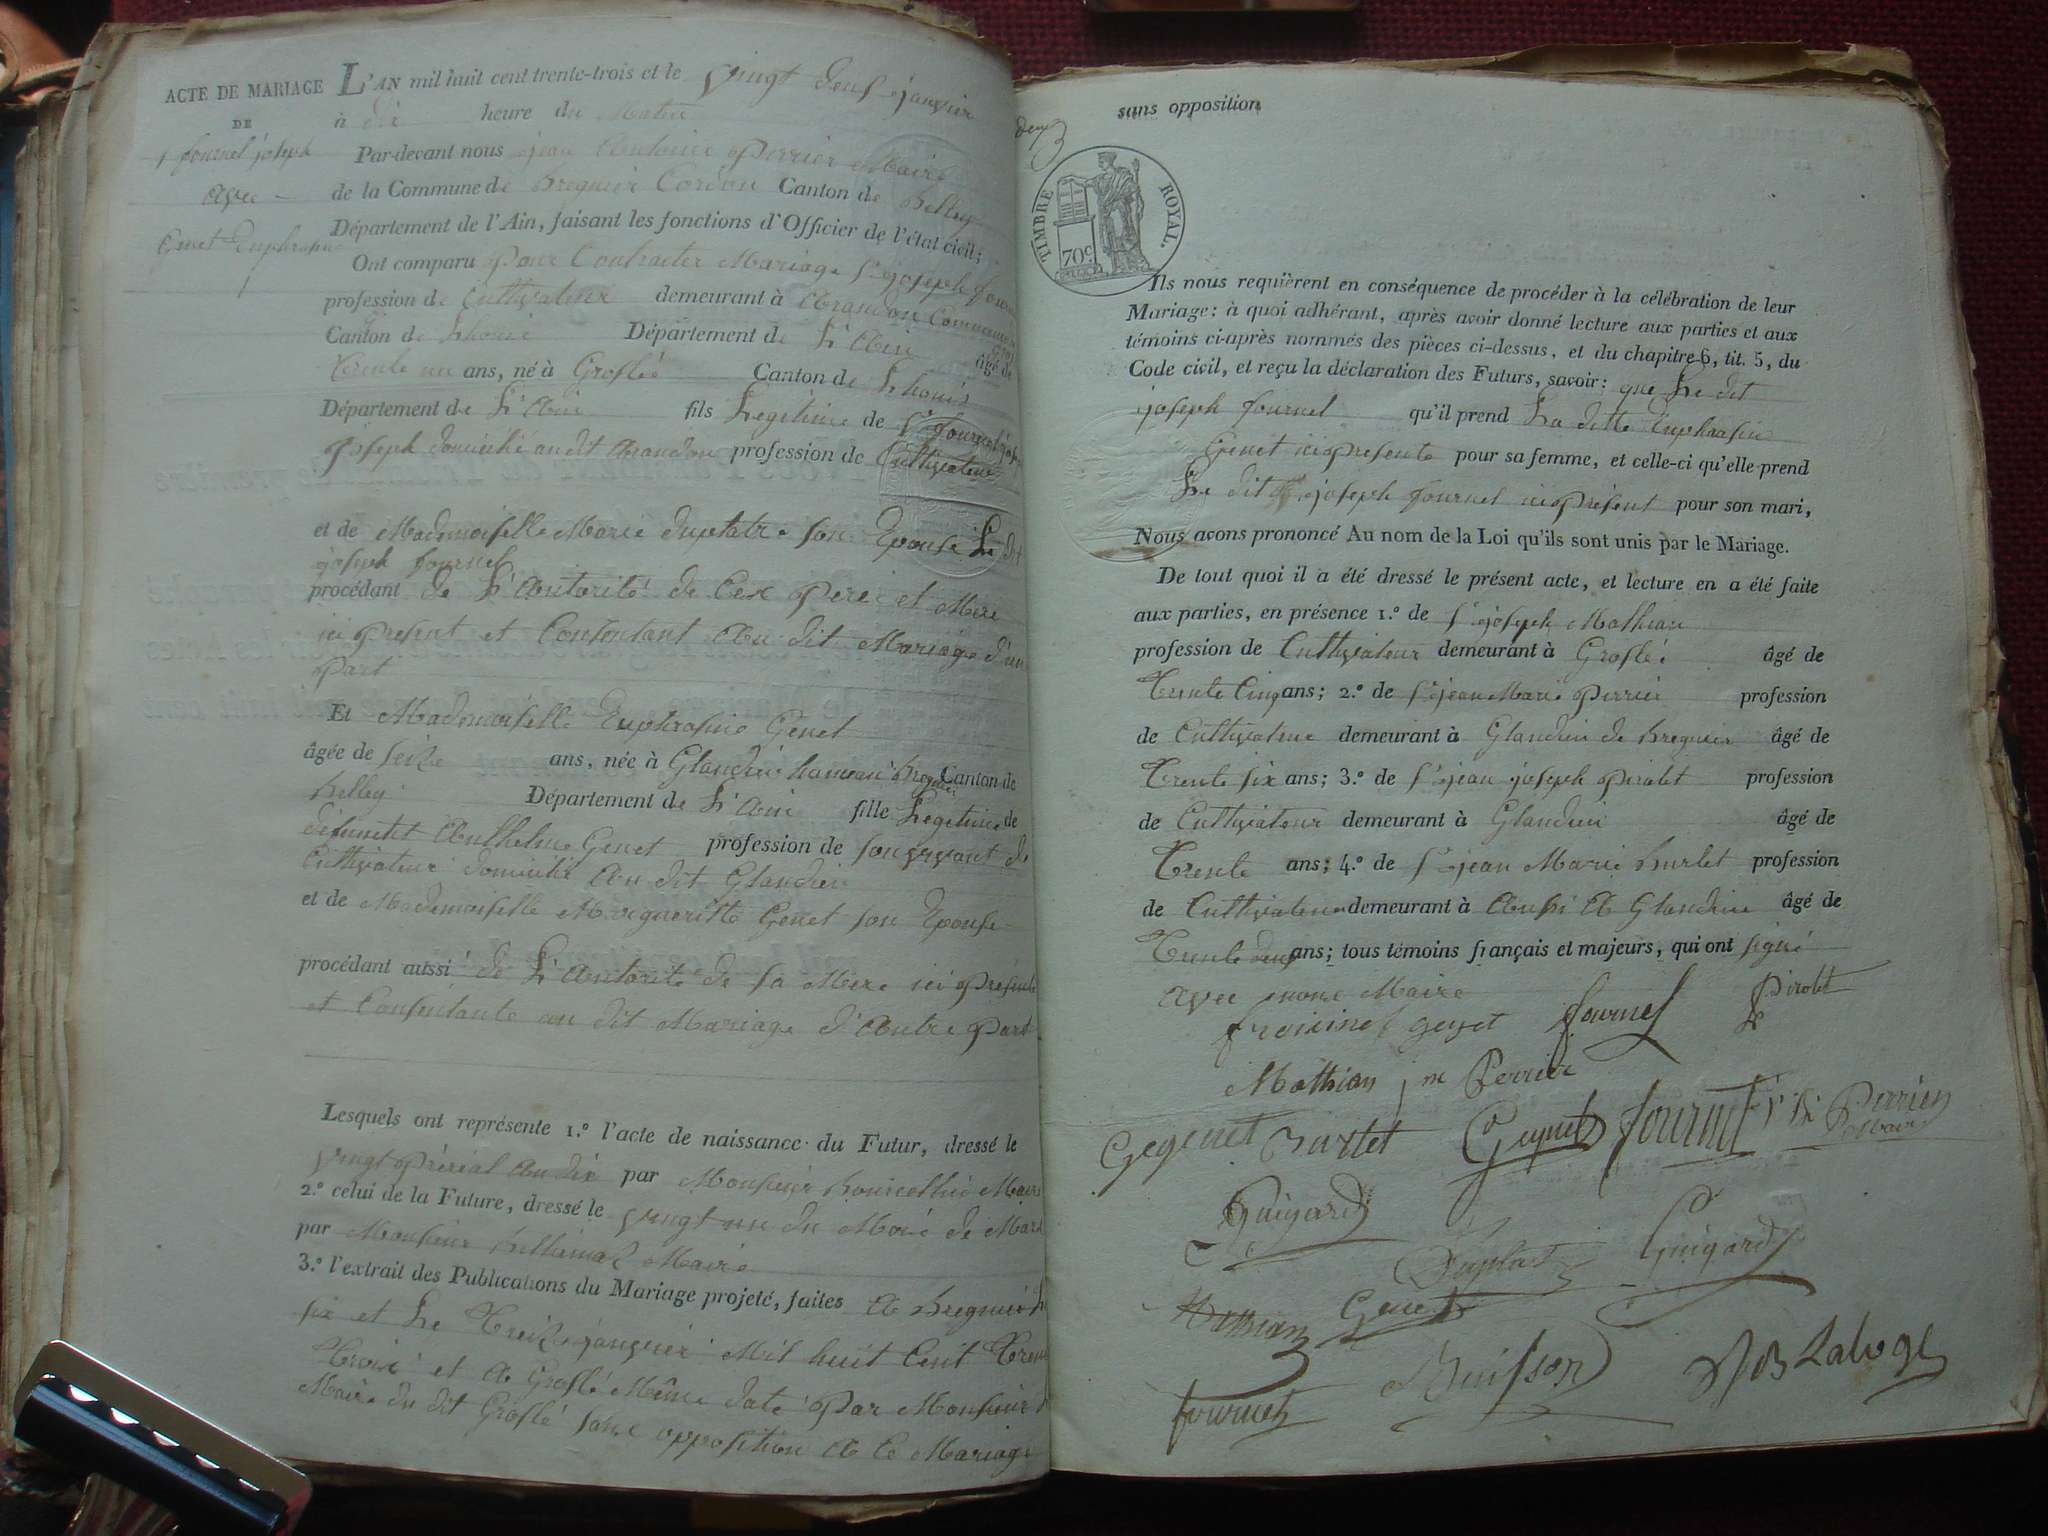 ACTE DE MARIAGE
DE
fournel joseph
avec
Genet Euphrosine
L'AN mil huit cent trente-trois et le vingt deus janvier
à dix heure du Matin
Par-devant nous jean Antoine Perrier Maire
de la Commune de Bregnier Cordon Canton de Belley
Département de l'Ain, faisant les fonctions d'Officier de l'état civil;
Ont comparu Pour Contracter Mariage Sr joseph fournel
profession de Cultivateur demeurant à Arandon Commune
Canton de Lhouis Département de L'Ain âgé de
Trente un ans, né à Groslée Canton de Lhouis
Département de L'Ain fils Legitime de Sr fournel
joseph domicilié au dit Arandon profession de Cultivateur
et de Mademoiselle Marie Duplatre son Epouse Le dit
joseph fournel
procédant de L'Autorité de Cex Pere et Mere
ici present et Contentant Au dit Mariage d'un
Part
Et Mademoiselle Euphrosine Genet
âgée de seize ans, née à Glandieu hameau Bregnier Canton de
Belley Département de L'Ain fille Legitime de
defunctet Anthelme Genet profession de son vivant de
Cultivateur domicilié Au dit Glandieu
et de Mademoiselle Margueritte Genet son Epouse
procédant aussi de L'Autorité de sa Mere ici Presente
et Consentante au dit Mariage d'Autre Part
Lesquels ont représenté 1.° l'acte de naissance du Futur, dressé le
vingt Prerial An dix par Monsieur Maire
2.° celui de la Future, dressé le vingt un du Moi de Mars
par Monsieur Maire
3.° l'extrait des Publications du Mariage projeté, faites A Bregnier Le
six et Le Treize janvier Mil huit Cent Trente
Trois et A Groslé Même date Par Monsieur Le
Maire du dit Groslé sans opposition A Ce Mariage
sans opposition
TIMBRE ROYAL.
70c
Ils nous requièrent en conséquence de procéder à la célébration de leur
Mariage: à quoi adhérant, après avoir donné lecture aux parties et aux
témoins ci-après nommés des pièces ci-dessus, et du chapitre 6, tit. 5, du
Code civil, et reçu la déclaration des Futurs, savoir: que Le dit
joseph fournel qu'il prend La ditte Euphrosine
Genet ici presente pour sa femme, et celle-ci qu'elle prend
Le dit joseph fournel ici Present pour son mari,
Nous avons prononcé Au nom de la Loi qu'ils sont unis par le Mariage.
De tout quoi il a été dressé le présent acte, et lecture en a été faite
aux parties, en présence 1.° de Sr joseph Mathian
profession de Cultivateur demeurant à Groslé âgé de
Trente Cinq ans; 2.° de Sr jean Marie Perrier profession
de Cultivateur demeurant à Glandieu de Bregnier âgé de
Trente six ans; 3.° de Sr jean joseph Pirolet profession
de Cultivateur demeurant à Glandieu âgé de
Trente ans; 4.° de Sr jean Marie Burlet profession
de Cultivateur demeurant à Aussi A Glandieu âgé de
Trente deux ans; tous témoins français et majeurs, qui ont signé
Avec nous Maire
froisine geyet fournel Pirolet
Mathian j m Perrier
Gegenet Burlet Geynet fournel Perrier
Maire
Guigard
Duplat Guigard
Mathian Genet
Buisson Laloge
fournel